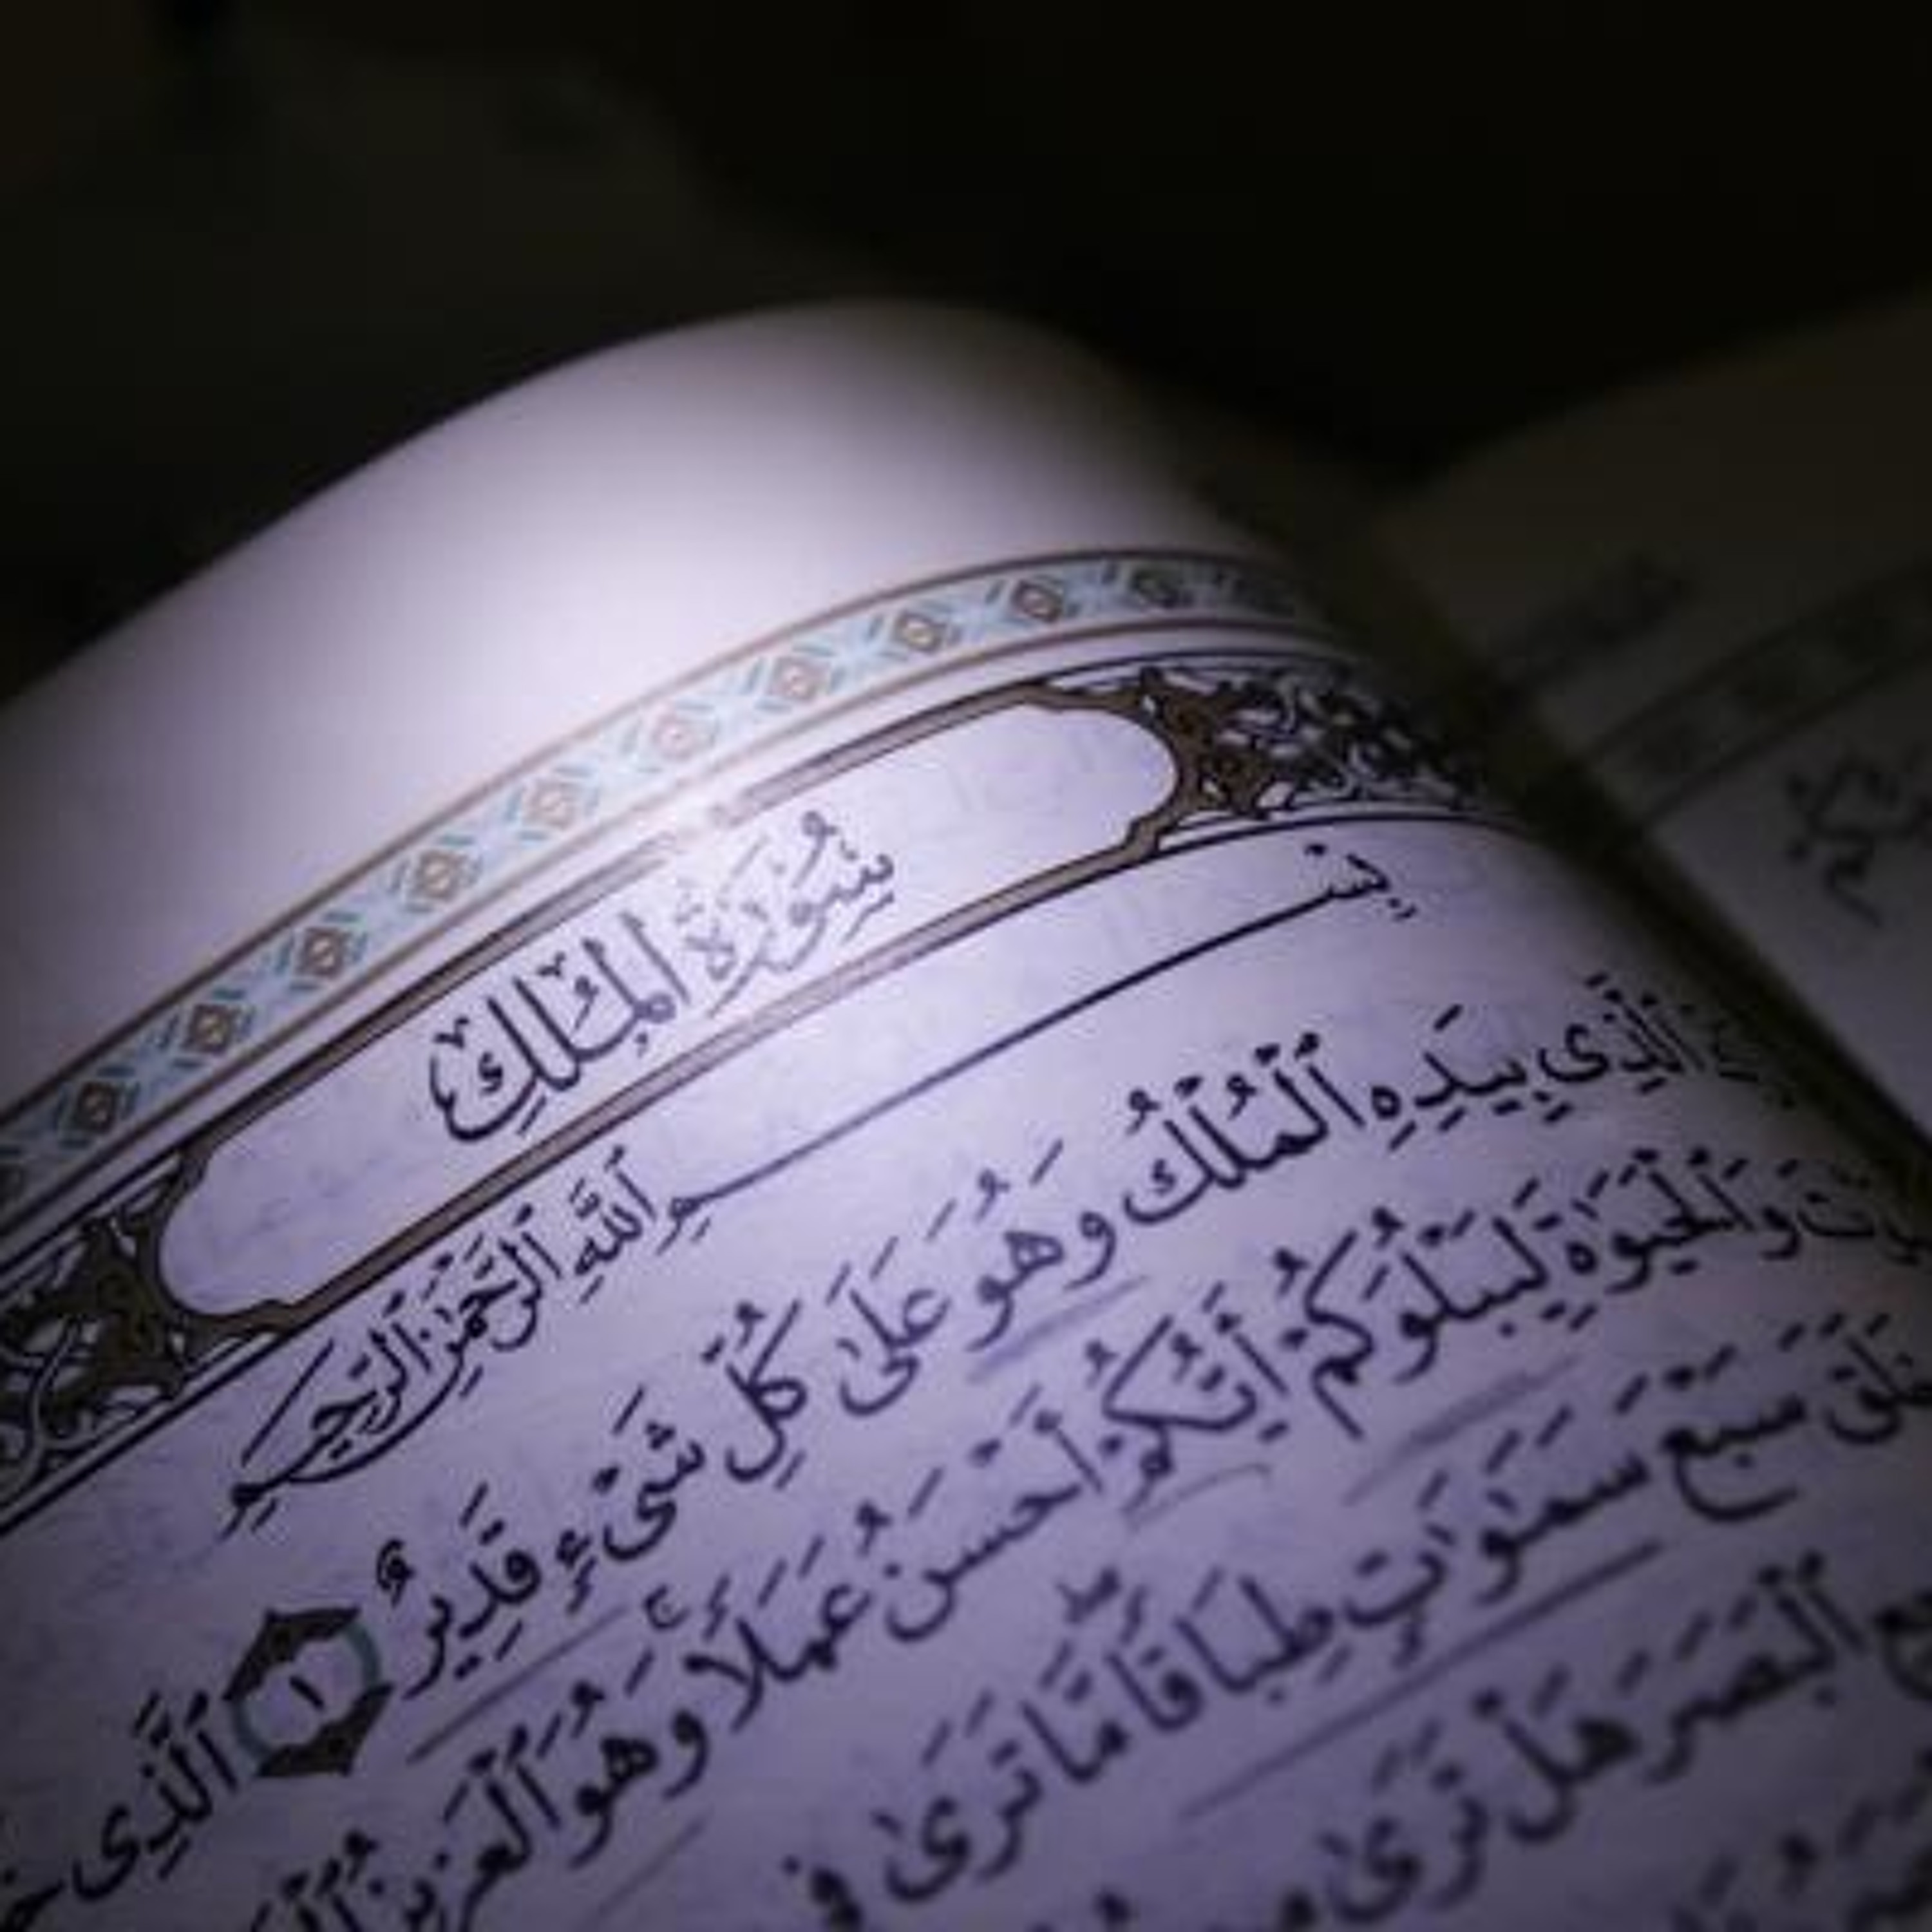 سُورَةُ المُلْكِ
بِسْمِ ٱللَّهِ ٱلرَّحْمَٰنِ ٱلرَّحِيمِ
ٱلَّذِى بِيَدِهِ ٱلْمُلْكُ وَهُوَ عَلَىٰ كُلِّ شَىْءٍ قَدِيرٌ ١ ٱلَّذِى
وَٱلْحَيَوٰةَ لِيَبْلُوَكُمْ أَيُّكُمْ أَحْسَنُ عَمَلًا وَهُوَ ٱلْعَزِيزُ
سَبْعَ سَمَٰوَٰتٍ طِبَاقًا مَّا تَرَىٰ فِى
ٱلْبَصَرَ هَلْ تَرَىٰ